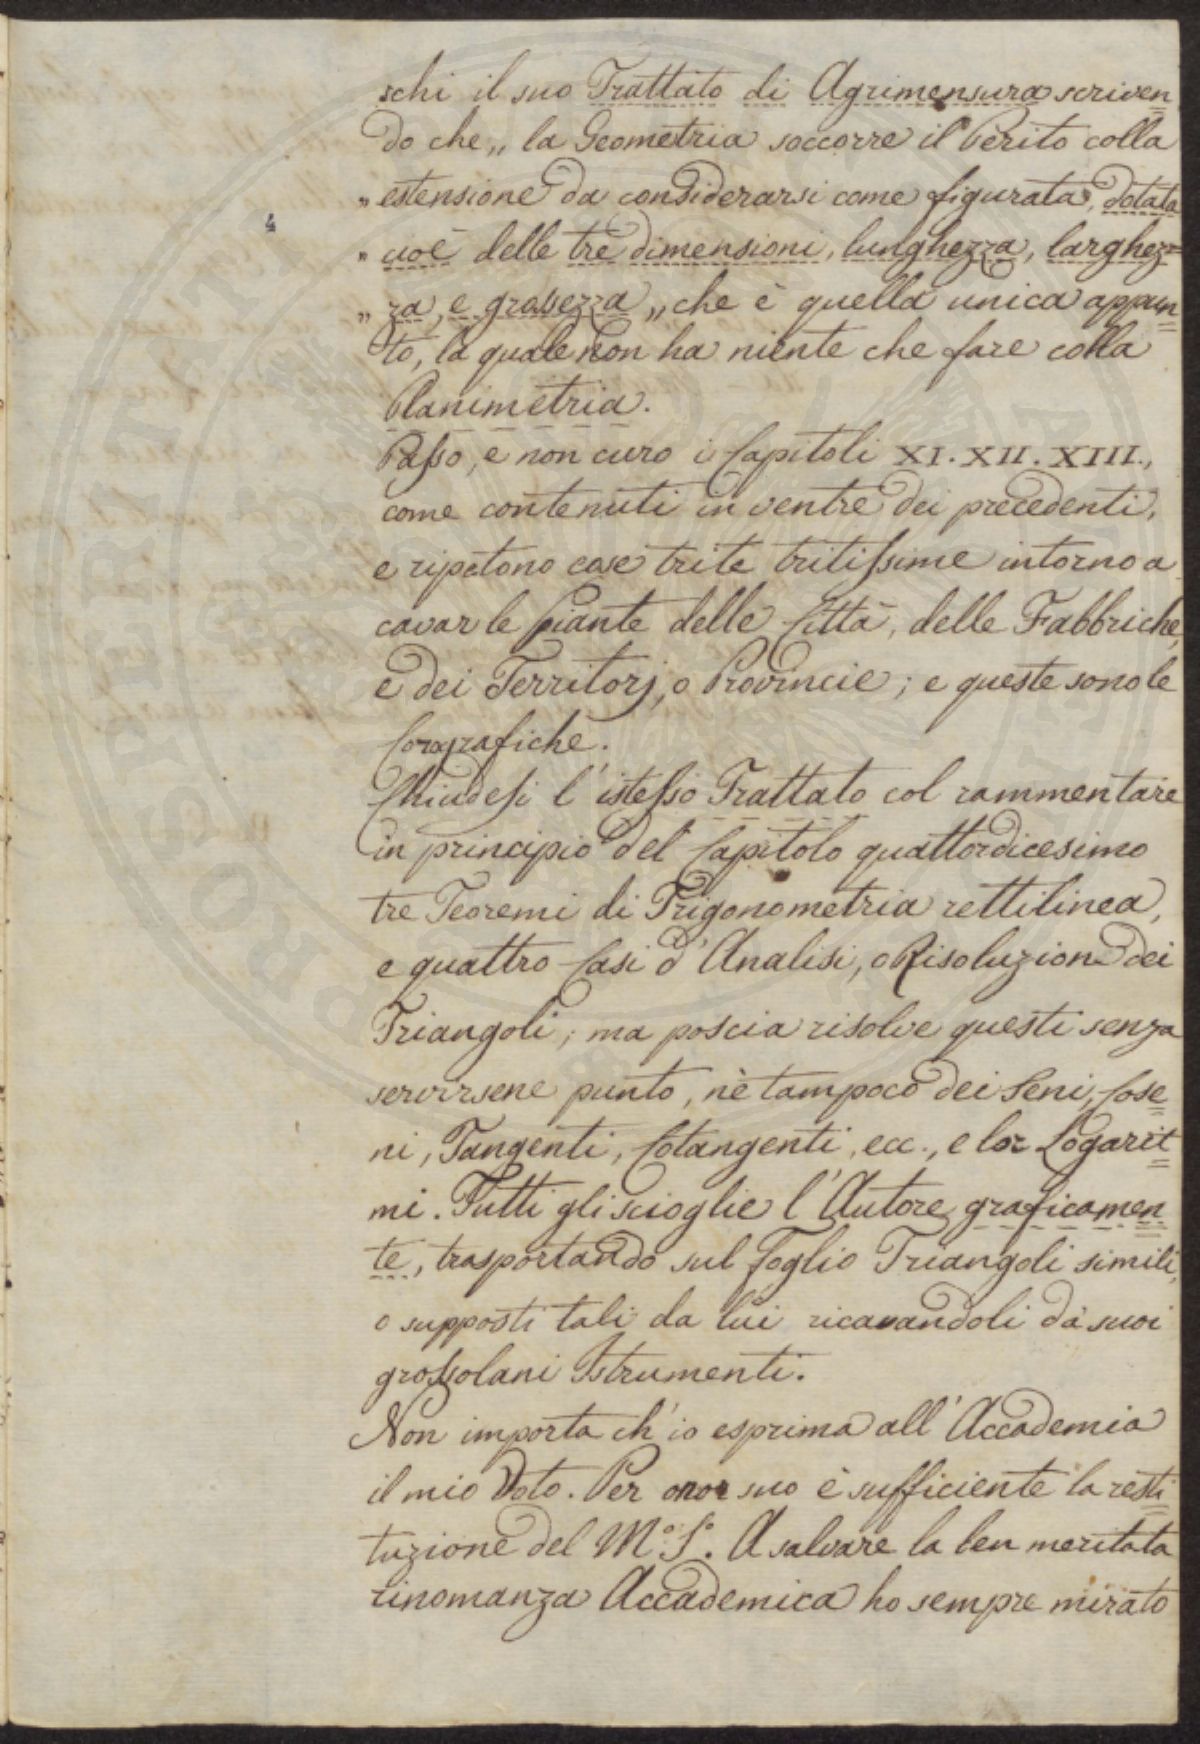 schi il suo Trattato di Agrimensura scriven
do che „ la Geometria soccorre il Perito colla
„ estensione da considerarsi come figurata, dotata
4
„ cioè delle tre dimensioni, lunghezza, larghez=
„ za, e grossezza „ che è quella unica appun
to, la quale non ha niente che fare colla
Planimetria.
Passo, e non curo i Capitoli XI. XII. XIII.,
come contenuti in ventre dei precedenti,
e ripetono cose trite tritissime intorno a
cavar le piante delle Città, delle Fabbriche,
e dei Territorj, o Provincie; e queste sono le
Corografiche.
Chiudesi l'istesso Trattato col rammentare
in principio del Capitolo quattordicesimo
tre Teoremi di Trigonometria rettilinea,
e quattro Casi d'Analisi, o Risoluzione dei
Triangoli; ma poscia risolve questi senza
servirsene punto, nè tampoco dei Seni, Cose
ni, Tangenti, Cotangenti, ecc., e lor Logarit
mi. Tutti gli scioglie l'Autore graficamen
te, trasportando sul foglio Triangoli simili,
o supposti tali da lui ricavandoli da' suoi
grossolani Istrumenti.
Non importa ch'io esprima all'Accademia
il mio Voto. Per onor suo è sufficiente la resti
tuzione del M.º S.º. A salvare la ben meritata
rinomanza Accademica ho sempre mirato